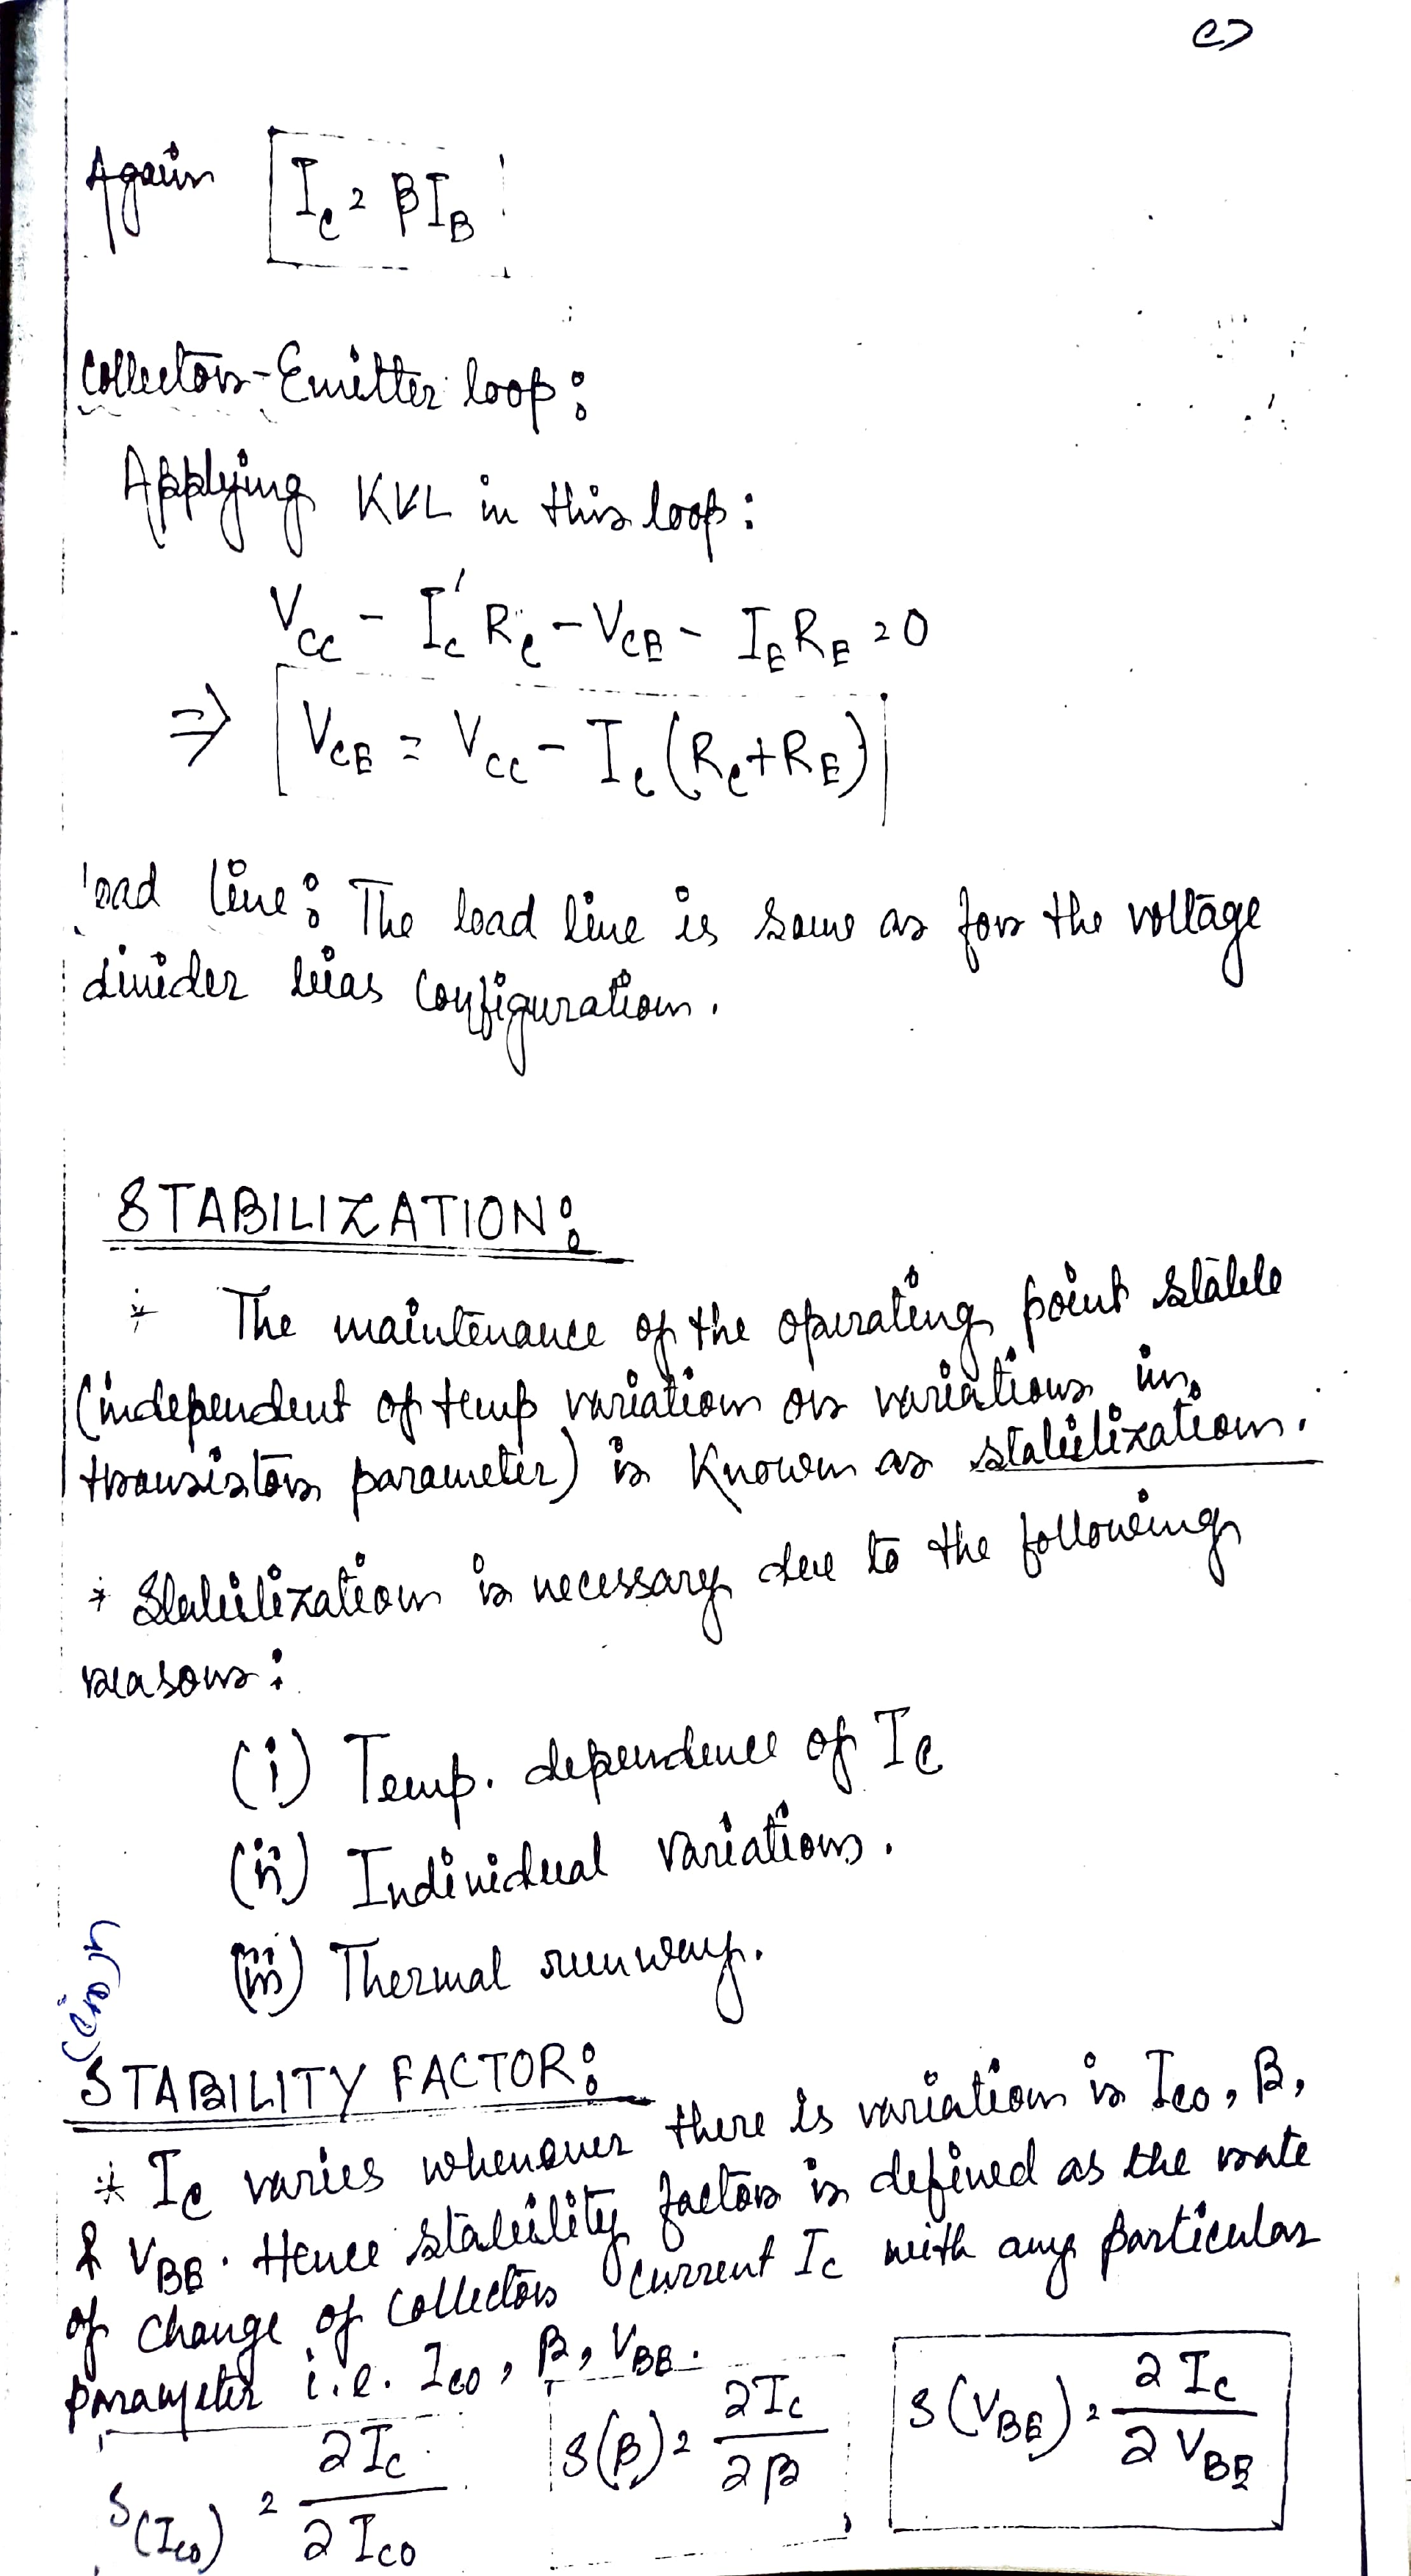 Again I_C = βI_B
Collector-Emitter loop:
Applying KVL in this loop:
V_CC - I_C' R_C - V_CE - I_E R_E = 0
⇒ V_CE = V_CC - I_C (R_C + R_E)
load line: The load line is same as for the voltage
divider bias configuration.
STABILIZATION:
* The maintenance of the operating point stable
(independent of temp variation or variations in
transistor parameter) is known as stabilization.
* Stabilization is necessary due to the following
reasons:
(i) Temp. dependence of I_C
(ii) Individual variations.
(iii) Thermal runway.
STABILITY FACTOR:
* I_C varies whenever there is variation is I_CO, β,
& V_BE. Hence stability factor is defined as the rate
of change of collector current I_C with any particular
parameter i.e. I_CO, β, V_BE.
S(I_CO) = ∂I_C / ∂I_CO S(β) = ∂I_C / ∂β S(V_BE) = ∂I_C / ∂V_BE